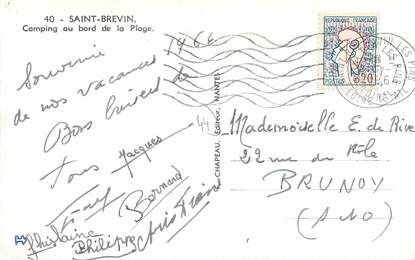 40 - SAINT-BREVIN.
Camping au bord de la Plage.
1966
Souvenir
de nos vacances
Bons baisers de
Tous Jacques
Bernard
Ghislaine
Philippe Christian
CHAPEAU, Éditeur, NANTES
44
REPUBLIQUE FRANCAISE
POSTES 0,20
LES PINS
LOIRE ATLANT.
Mademoiselle E. de Rive
22 rue du Rôle
BRUNOY
(S&O)